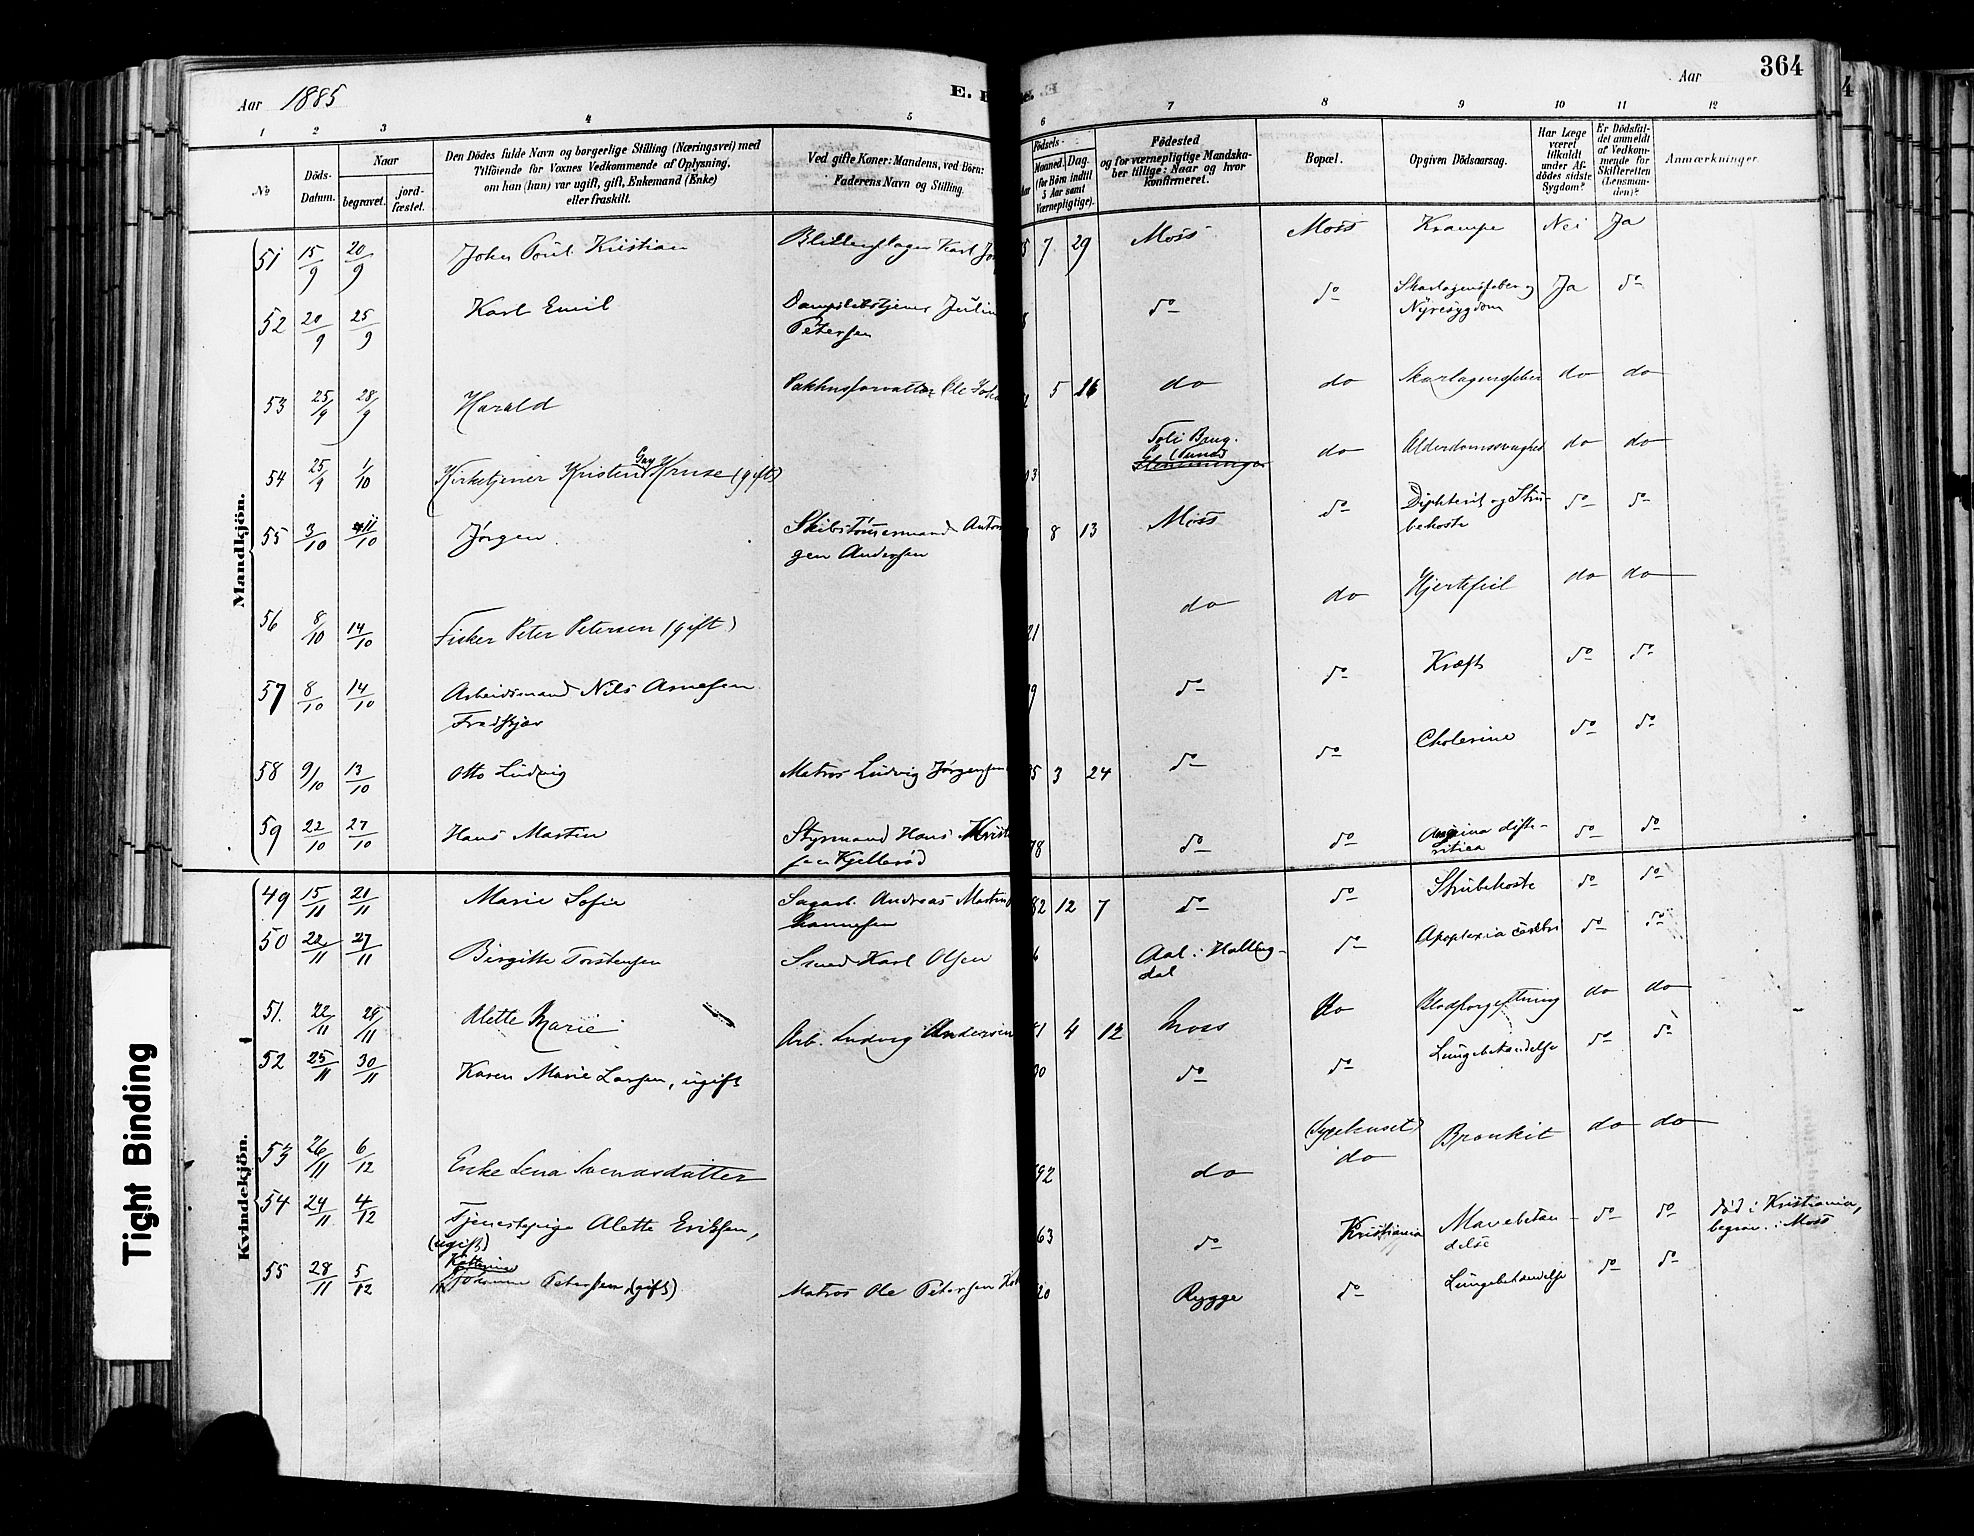 364
Aar 1885
Aar
E.
1 2 3 4 5 6 7 8 9 10 11 12
№
Döds-
Datum.
Naar
begravet.
jord-
fæstet.
Den Dödes fulde Navn og borgerlige Stilling (Næringsvei) med
Tilföiende for Voxnes Vedkommende af Oplysning,
om han (hun) var ugift, gift, Enkemand (Enke)
eller fraskilt.
Ved gifte Koner: Mandens, ved Börn:
Faderens Navn og Stilling.
Födsels-
Maaned. Dag.
(for Börn indtil
5 Aar samt
Værnepligtige).
Födested
og for værnepligtige Mandska-
ber tillige: Naar og hvor
konfirmeret.
Bopæl.
Opgiven Dödsaarsag.
Har Læge
været
tilkaldt
under Af-
dödes sidste
Sygdom?
Er Dödsfal-
det anmeldt
af Vedkom-
mende for
Skifteretten
(Lensman-
den)?
Anmærkninger.
Mandkjön.
51 15/9 20/9 Johan Poul Kristian Blikkenslager Karl 7 29 Moss Moss Krampe Nei Ja
52 20/9 25/9 Karl Emil Petersen do do Skarlagensfeber og Ja do
Nyresygdom
53 25/9 28/9 Harald Pakhusforvalter Ole 5 16 do do Skarlagensfeber do do
54 25/9 1/10 Kirketjener Kristen Kruse (gift) 03 do Alderdomssvaghed do do
55 3/10 11/10 Jörgen Skibstömmermand Anton 8 13 Moss do Diphterit og Stru- do do
gen Andersen behoste
56 8/10 14/10 Fisker Peter Petersen (gift) 21 do do Hjertefeil do do
57 8/10 14/10 Arbeidsmand Nils Arnesen do do Kræft do do
58 9/10 13/10 Otto Ludvig Matros Ludvig Jørgensen 85 3 24 do do Cholerine do do
59 22/10 27/10 Hans Martin Styrmand Hans Krist 78 do do Angina difte- do do
sen Kjellerød ritica
Kvindekjön.
49 15/11 21/11 Marie Sofie Sagarb. Andreas Martin 82 12 7 do do Strubehoste do do
50 22/11 27/11 Birgitte Torstensen Smed Karl Olsen Aal i Halling- do Apoplexia cerebri do do
dal
51. 22/11 28/11 Alette Marie Arb. Ludvig Andersen 4 12 Moss do Blodforgiftning do do
52 25/11 30/11 Karen Marie Larsen, ugift do do Lungebetændelse do do
53 26/11 6/12 Enke Lena Svendsdatter 92 do (Sygehuset) Bronkit do do
do
54 24/11 4/12 Tjenestepige Alette Eriksen, 63 do Kristiania Mavebetæn- do do død i Kristiania,
(ugift) delse begrav. i Moss
55 28/11 5/12 Petersen (gift) Matros Ole Petersen 20 Rygge do Lungebetændelse do do
Tight Binding